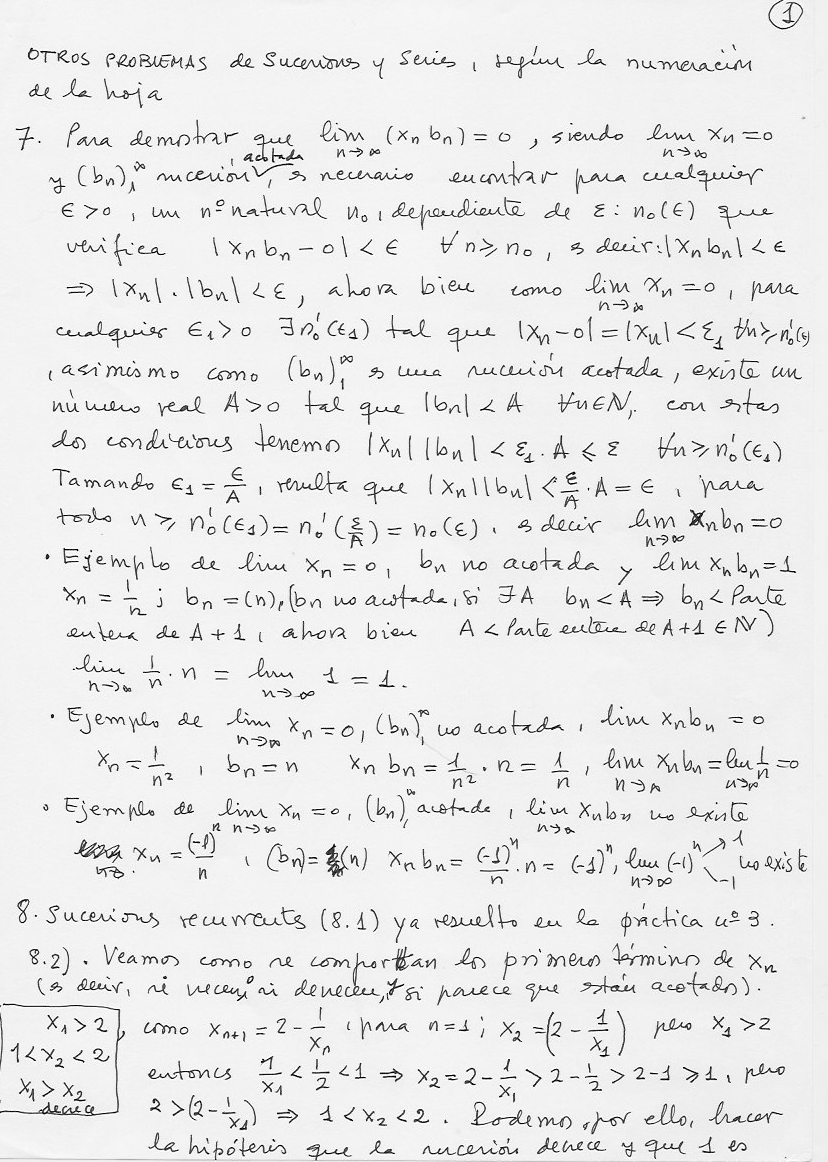 1
OTROS PROBLEMAS de Sucesiones y Series, según la numeración
de la hoja
7. Para demostrar que lim n→∞ (xn bn) = 0, siendo lim n→∞ xn = 0
y (bn)₁^∞ sucesión acotada, es necesario encontrar para cualquier
ϵ > 0, un nº natural n₀, dependiente de ε: n₀(ε) que
verifica |xn bn − 0| < ϵ ∀n ≥ n₀, es decir: |xn bn| < ϵ
⇒ |xn|·|bn| < ε, ahora bien como lim n→∞ xn = 0, para
cualquier ϵ₁ > 0 ∃ n₀'(ϵ₁) tal que |xn − 0| = |xn| < ε₁ ∀n ≥ n₀'(ε)
, asimismo como (bn)₁^∞ es una sucesión acotada, existe un
número real A > 0 tal que |bn| < A ∀n∈N, con estas
dos condiciones tenemos |xn||bn| < ε₁·A ≤ ε ∀n ≥ n₀'(ϵ₁)
Tamando ϵ₁ = ϵ/A, resulta que |xn||bn| < ε/A · A = ϵ, para
todo n ≥ n₀'(ϵ₁) = n₀'(ε/A) = n₀(ε), es decir lim n→∞ xn bn = 0
• Ejemplo de lim xn = 0, bn no acotada y lim xn bn = 1
xn = 1/n ; bn = (n), (bn no acotada, si ∃A bn < A ⇒ bn < Parte
entera de A + 1, ahora bien A < Parte entera de A + 1 ∈ N)
lim n→∞ 1/n · n = lim n→∞ 1 = 1.
• Ejemplo de lim n→∞ xn = 0, (bn)₁^∞ no acotada, lim xn bn = 0
xn = 1/n², bn = n xn bn = 1/n² · n = 1/n, lim n→∞ xn bn = lim n→∞ 1/n = 0
• Ejemplo de lim n→∞ xn = 0, (bn)₁^∞ acotada, lim n→∞ xn bn no existe
xn = (−1)^n/n, (bn) = (n) xn bn = (−1)^n/n · n = (−1)^n, lim n→∞ (−1)^n ↗ 1 ↘ −1 no existe
8. Sucesiones recurrentes (8.1) ya resuelto en la práctica nº 3.
8.2). Veamos como se comportan los primeros términos de xn
(es decir, si crecen o si decrecen, y si parece que están acotados).
x₁ > 2
1 < x₂ < 2
x₁ > x₂
decrece
, como xn+1 = 2 − 1/xn, para n=1; x₂ = (2 − 1/x₁) pero x₁ > 2
entonces 1/x₁ < 1/2 < 1 ⇒ x₂ = 2 − 1/x₁ > 2 − 1/2 > 2 − 1 ≥ 1, pero
2 > (2 − 1/x₁) ⇒ 1 < x₂ < 2. Podemos, por ello, hacer
la hipótesis que la sucesión decrece y que 1 es